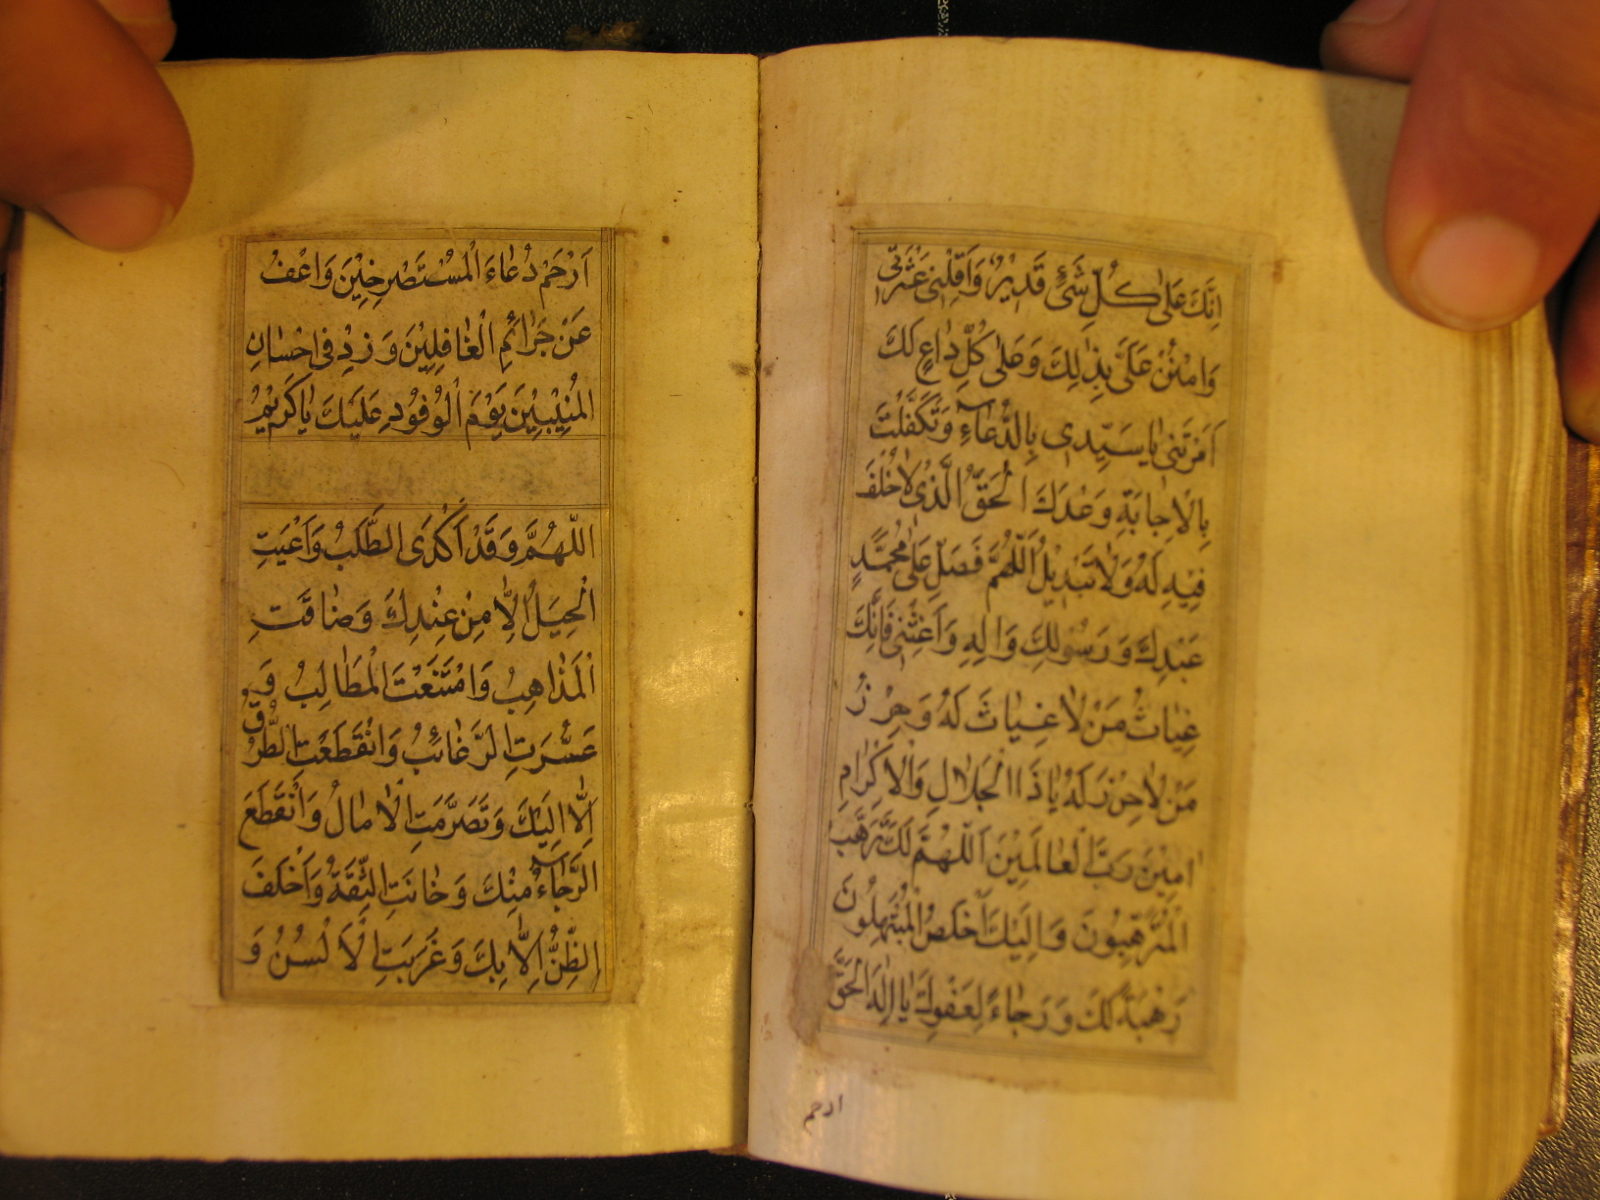 اِنَّكَ عَلٰى كُلِّ شَىْءٍ قَدِيْرٌ وَاَقِلْنِى عَثْرَتِى
وَامْنُنْ عَلَىَّ بِذٰلِكَ وَعَلٰى كُلِّ دٰاعٍ لَكَ
اَمَرْتَنِى يٰا سَيِّدِى بِالدُّعٰاءِ وَتَكَفَّلْتَ
بِالْاِجٰابَةِ وَعْدَكَ الْحَقَّ الَّذِى لٰا خُلْفَ
فِيْهِ لَهُ وَلٰا تَبْدِيْلَ اَللّٰهُمَّ فَصَلِّ عَلٰى مُحَمَّدٍ
عَبْدِكَ وَرَسُولِكَ وَاٰلِهِ وَاَغِثْنِى فَاِنَّكَ
غِيٰاثُ مَنْ لٰا غِيٰاثَ لَهُ وَحِرْزُ
مَنْ لٰا حِرْزَ لَهُ يٰا ذَا الْجَلٰالِ وَالْاِكْرٰامِ
اٰمِيْنَ رَبَّ الْعٰالَمِيْنَ اَللّٰهُمَّ لَكَ تَرَهَّبَ
الْمُتَرَهِّبُونَ وَاِلَيْكَ اَخْلَصَ الْمُبْتَهِلُونَ
رَهْبَةً لَكَ وَرَجٰاءً لِعَفْوِكَ يٰا اِلٰهَ الْحَقِّ
ارحم
اَرْحَمْ دُعٰاءَ الْمُسْتَصْرِخِيْنَ وَاعْفُ
عَنْ جَرٰائِمِ الْغٰافِلِيْنَ وَزِدْ فِى اِحْسٰانِ
الْمُنِيْبِيْنَ يَوْمَ الْوُفُوْدِ عَلَيْكَ يٰا كَرِيْمُ
اللّٰهُمَّ وَقَدْ اَكْدَى الطَّلَبُ وَاَعْيَتِ
الْحِيَلُ اِلّٰا مِنْ عِنْدِكَ وَضٰاقَتِ
الْمَذٰاهِبُ وَامْتَنَعَتِ الْمَطٰالِبُ وَ
عَسُرَتِ الرَّغٰائِبُ وَانْقَطَعَتِ الطُّرُقُ
اِلّٰا اِلَيْكَ وَتَصَرَّمَتِ الْاٰمٰالُ وَانْقَطَعَ
الرَّجٰاءُ مِنْكَ وَخٰانَتِ الثِّقَةُ وَاَخْلَفَ
الظَّنُّ اِلّٰا بِكَ وَغَرَبَتِ الْاَلْسُنُ وَ